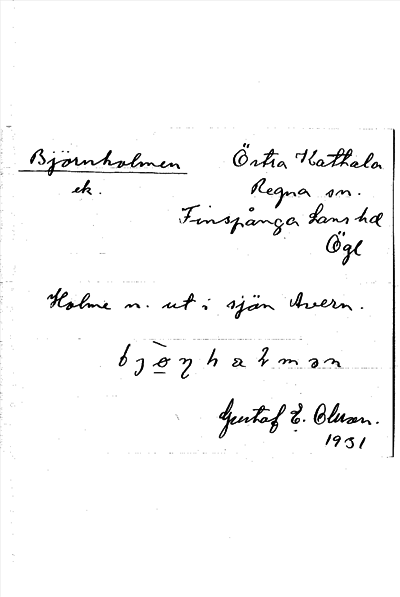 Björnholmen
Östra Kathala
ek.
Regna sn.
Finspånga läns hd
Ögl
Holme n. ut i sjön Avern.
Gustaf E. Olsson.
1931